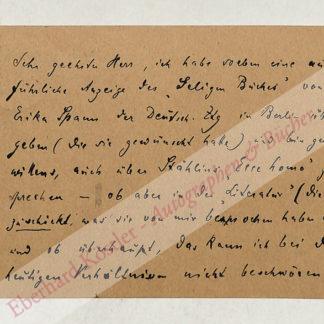 Sehr geehrter Herr, ich habe soeben eine aus
führliche Anzeige des "Seligen Buches" von
Erika Spann der Deutsch. Ztg in Berlin
geben (die sie gewünscht hatte) und bin ge
willens, auch über Stählins "Ecce homo" zu
sprechen – ob aber in der "Literatur" (die
zuschickt, was sie von mir besprochen haben
und ob überhaupt, das kann ich bei d
heutigen Verhältnissen nicht beschwören
Eberhard Köstler - Autographen & Bücher